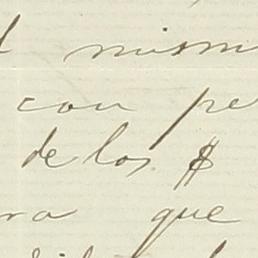 l mism
con pe
de los $
ra que